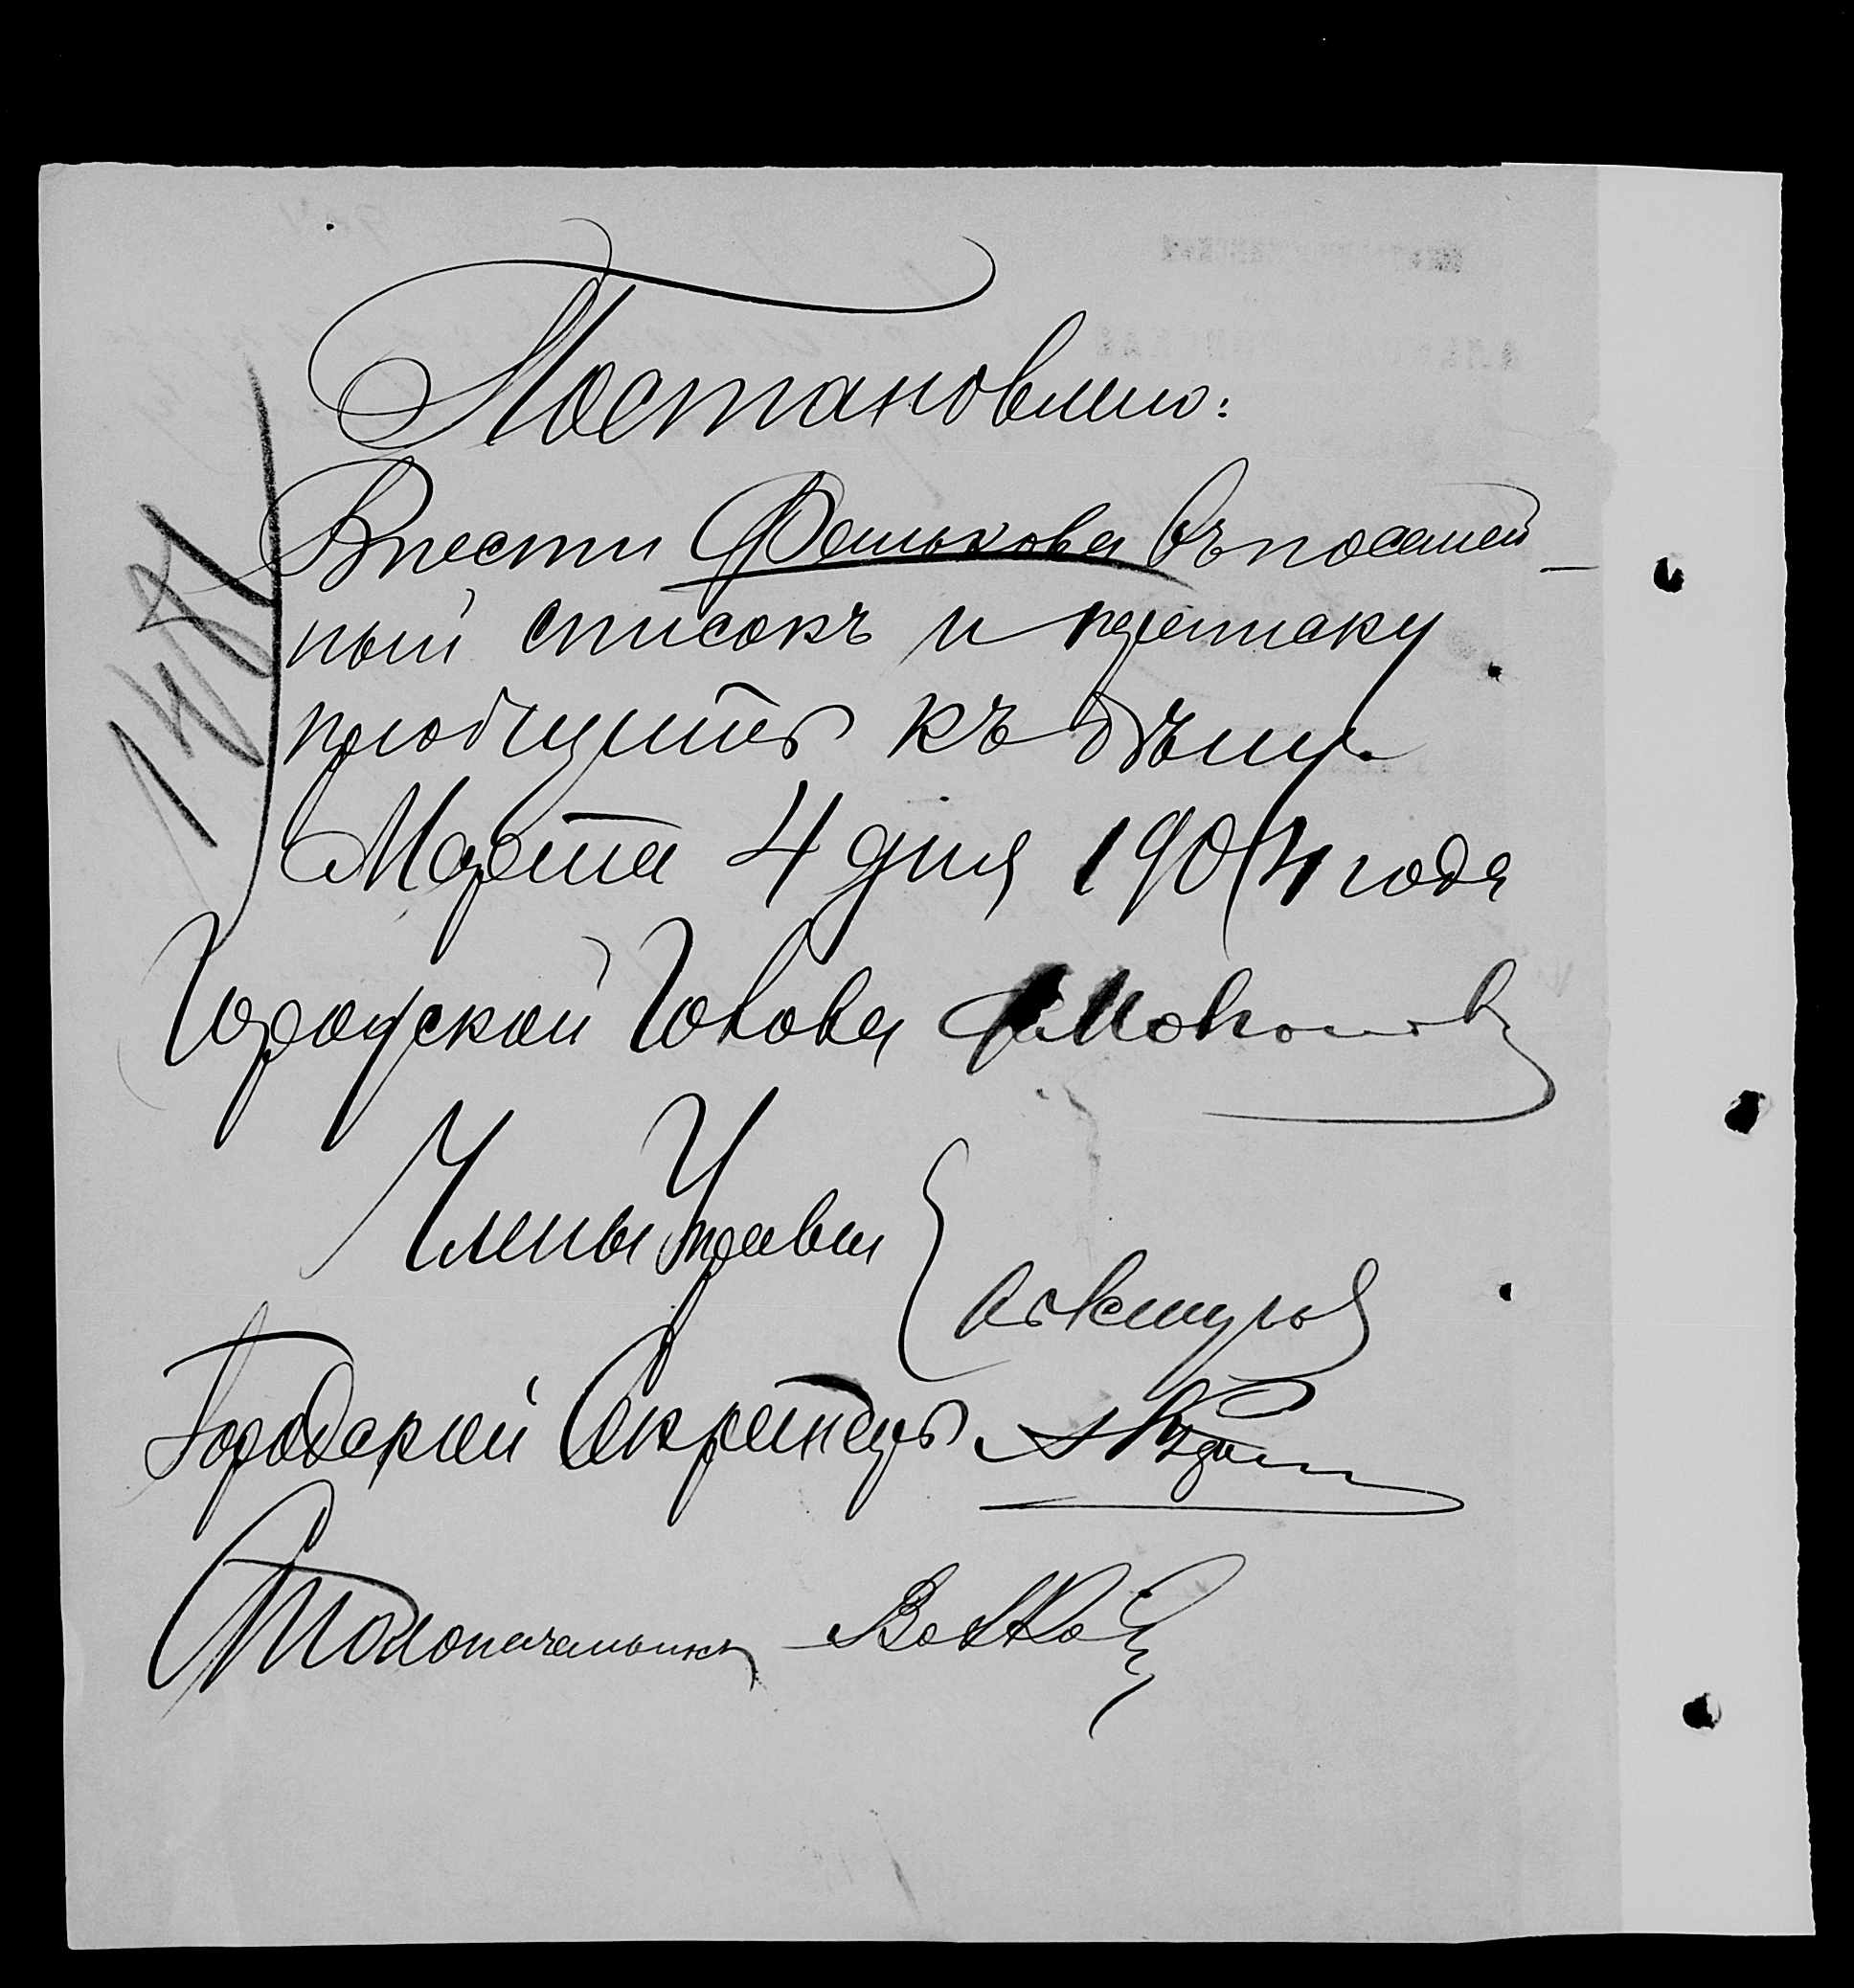 Постановлено:
Внести Фалькова въ посемей-
ный списокъ и переписку
пріобщить къ дѣлу.
Марта 4 дня 1904 года
Городской Голова
Члены Управы
Городской Секретарь
Столоначальникъ